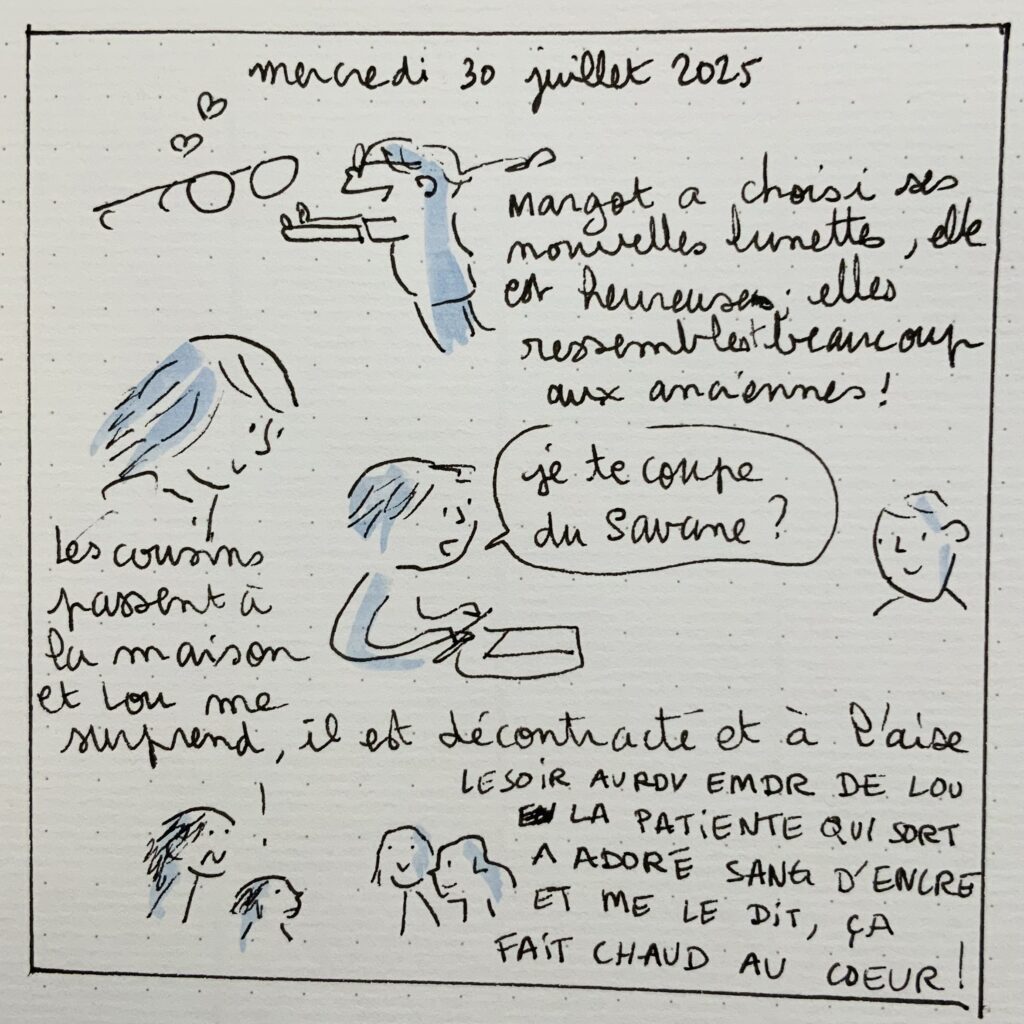 mercredi 30 juillet 2025
Margot a choisi ses
nouvelles lunettes, elle
est heureuse; elles
ressemblent beaucoup
aux anciennes!
je te coupe
du Savane?
Les cousins
passent à
la maison
et Lou me
surprend, il est décontracté et à l'aise
LE SOIR AU RDV EMDR DE LOU
LA PATIENTE QUI SORT
A ADORÉ SANG D'ENCRE
ET ME LE DIT, ÇA
FAIT CHAUD AU COEUR!